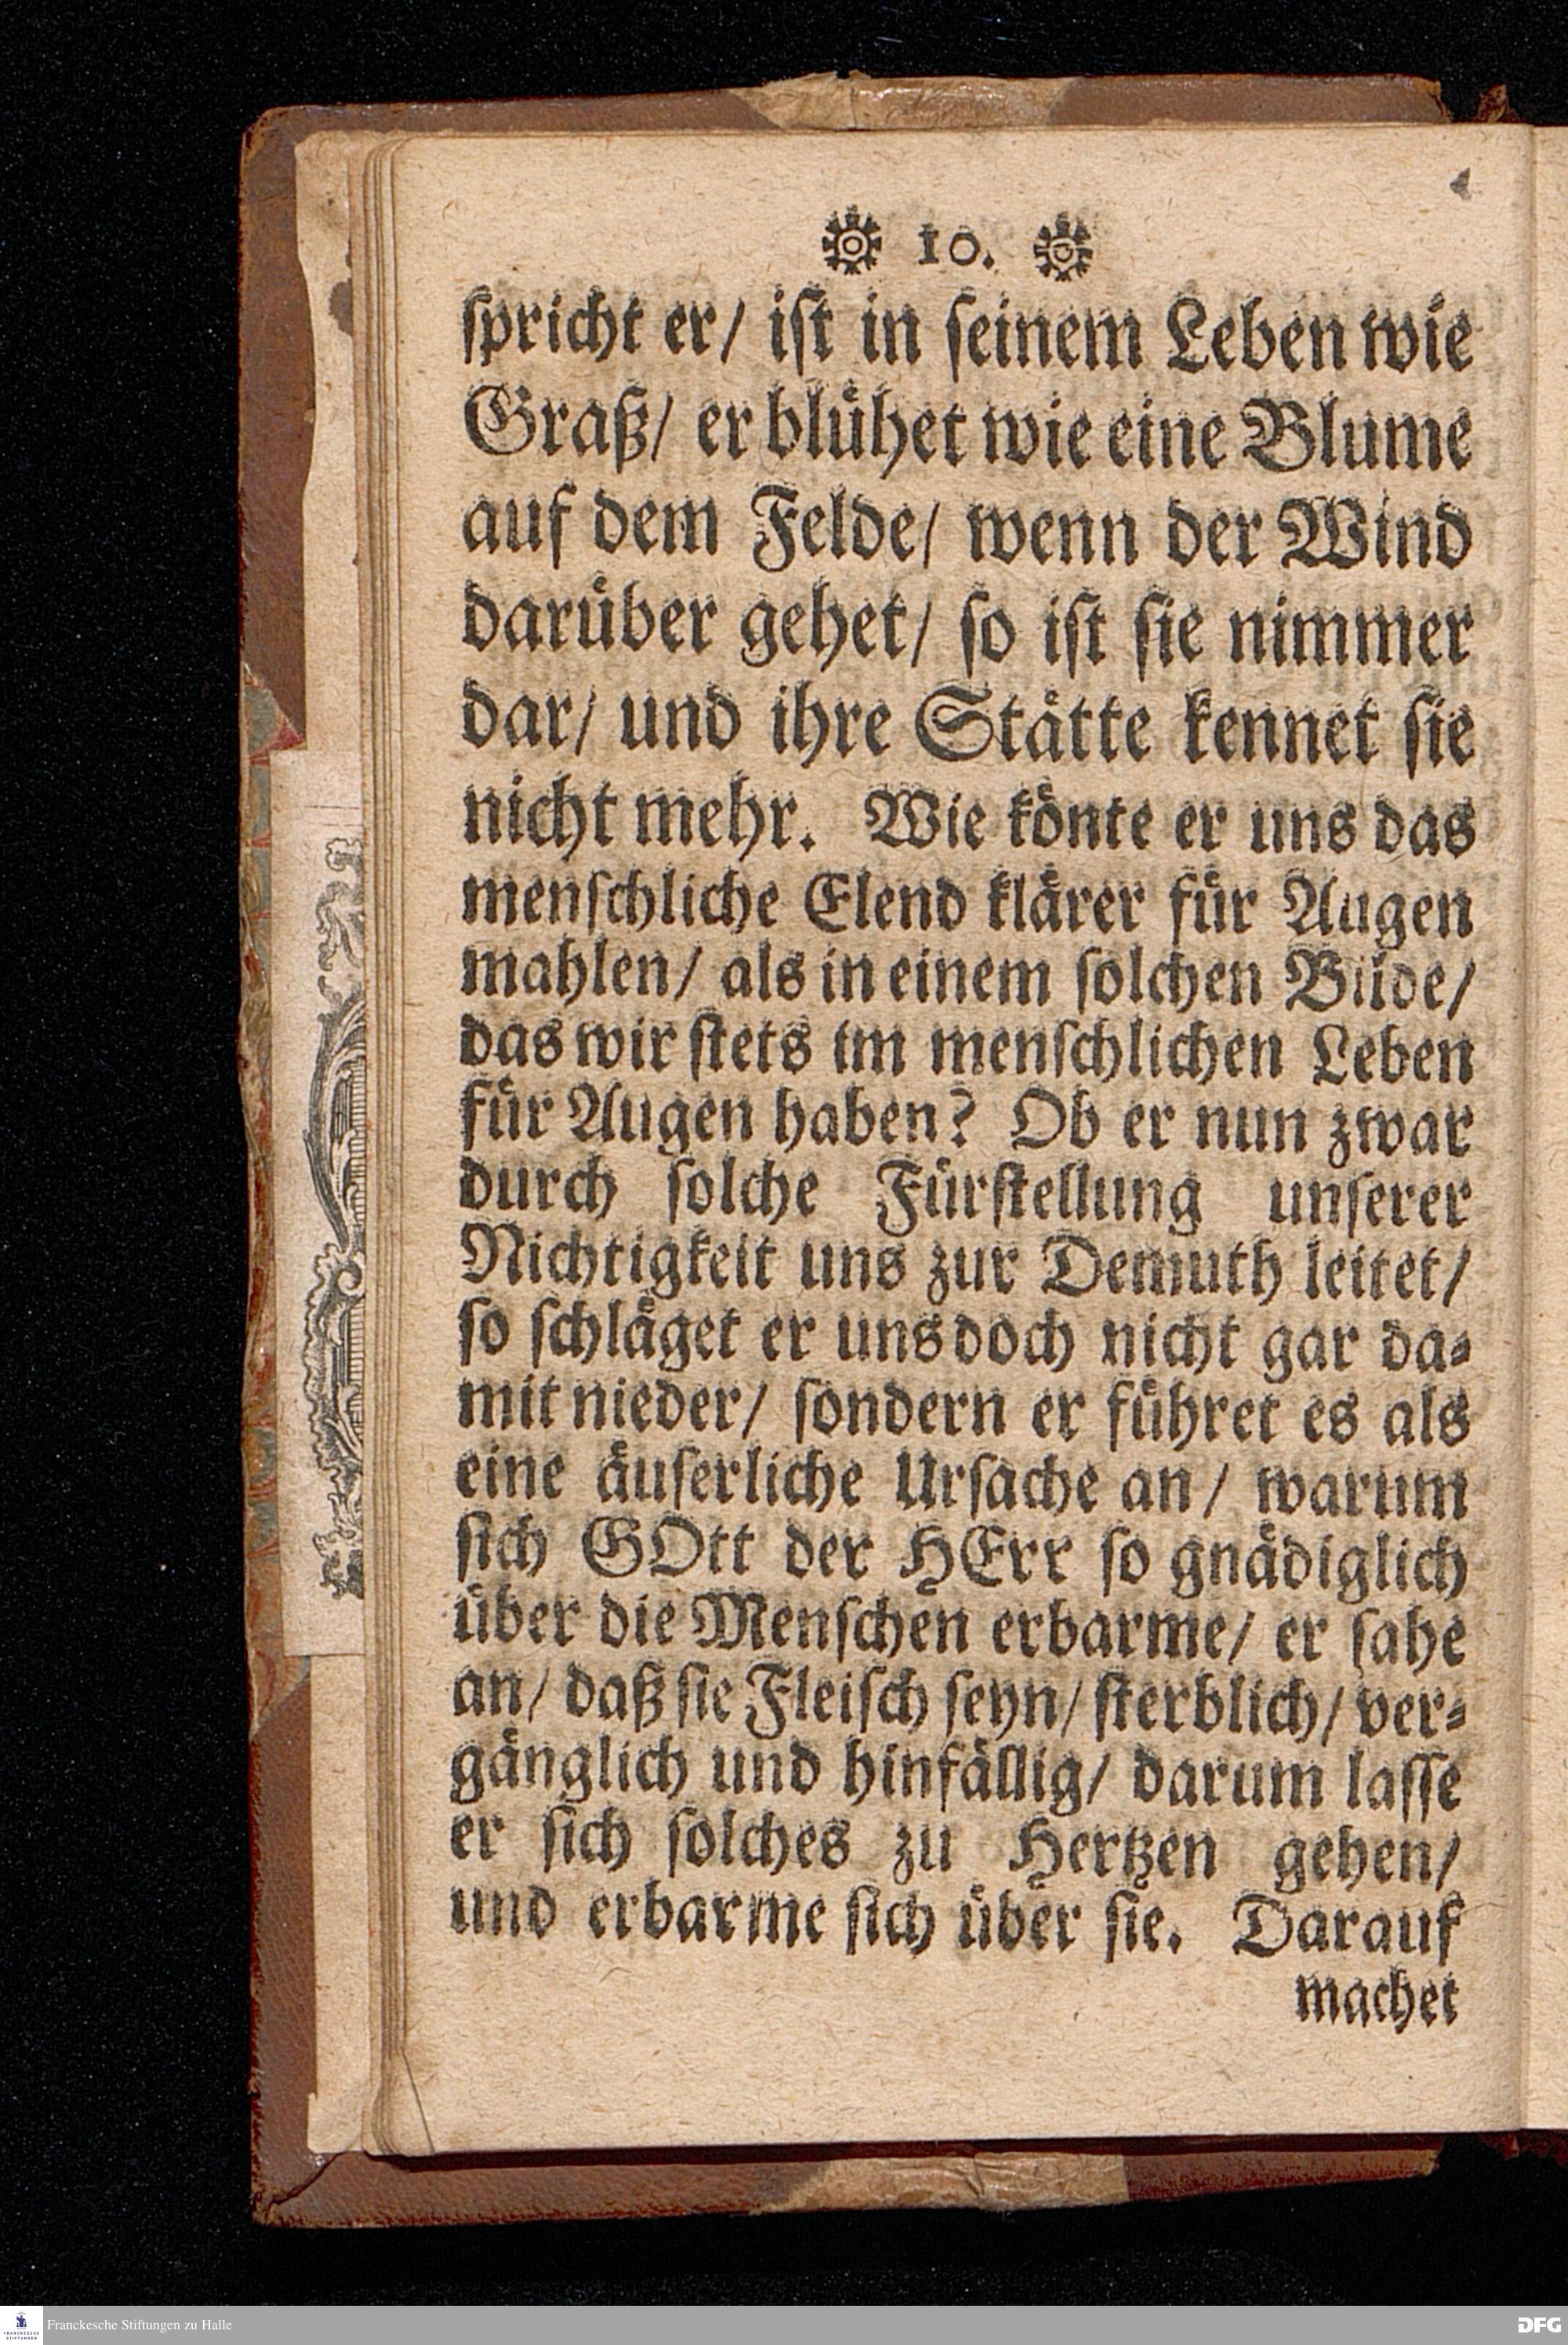 10.
spricht er/ ist in seinem Leben wie
Graß/ er blühet wie eine Blume
auf dem Felde/ wenn der Wind
darüber gehet/ so ist sie nimmer
dar/ und ihre Stätte kennet sie
nicht mehr. Wie könte er uns das
menschliche Elend klärer für Augen
mahlen/ als in einem solchen Bilde/
das wir stets im menschlichen Leben
für Augen haben? Ob er nun zwar
durch solche Fürstellung unserer
Nichtigkeit uns zur Demuth leitet/
so schläget er uns doch nicht gar da-
mit nieder/ sondern er führet es als
eine äuserliche Ursache an/ warum
sich GOtt der HErr so gnädiglich
über die Menschen erbarme/ er sahe
an/ daß sie Fleisch seyn/ sterblich/ ver-
gänglich und hinfällig/ darum lasse
er sich solches zu Hertzen gehen/
und erbarme sich über sie. Darauf
machet
FRANCKESCHE
STIFTUNGEN
Franckesche Stiftungen zu Halle
DFG